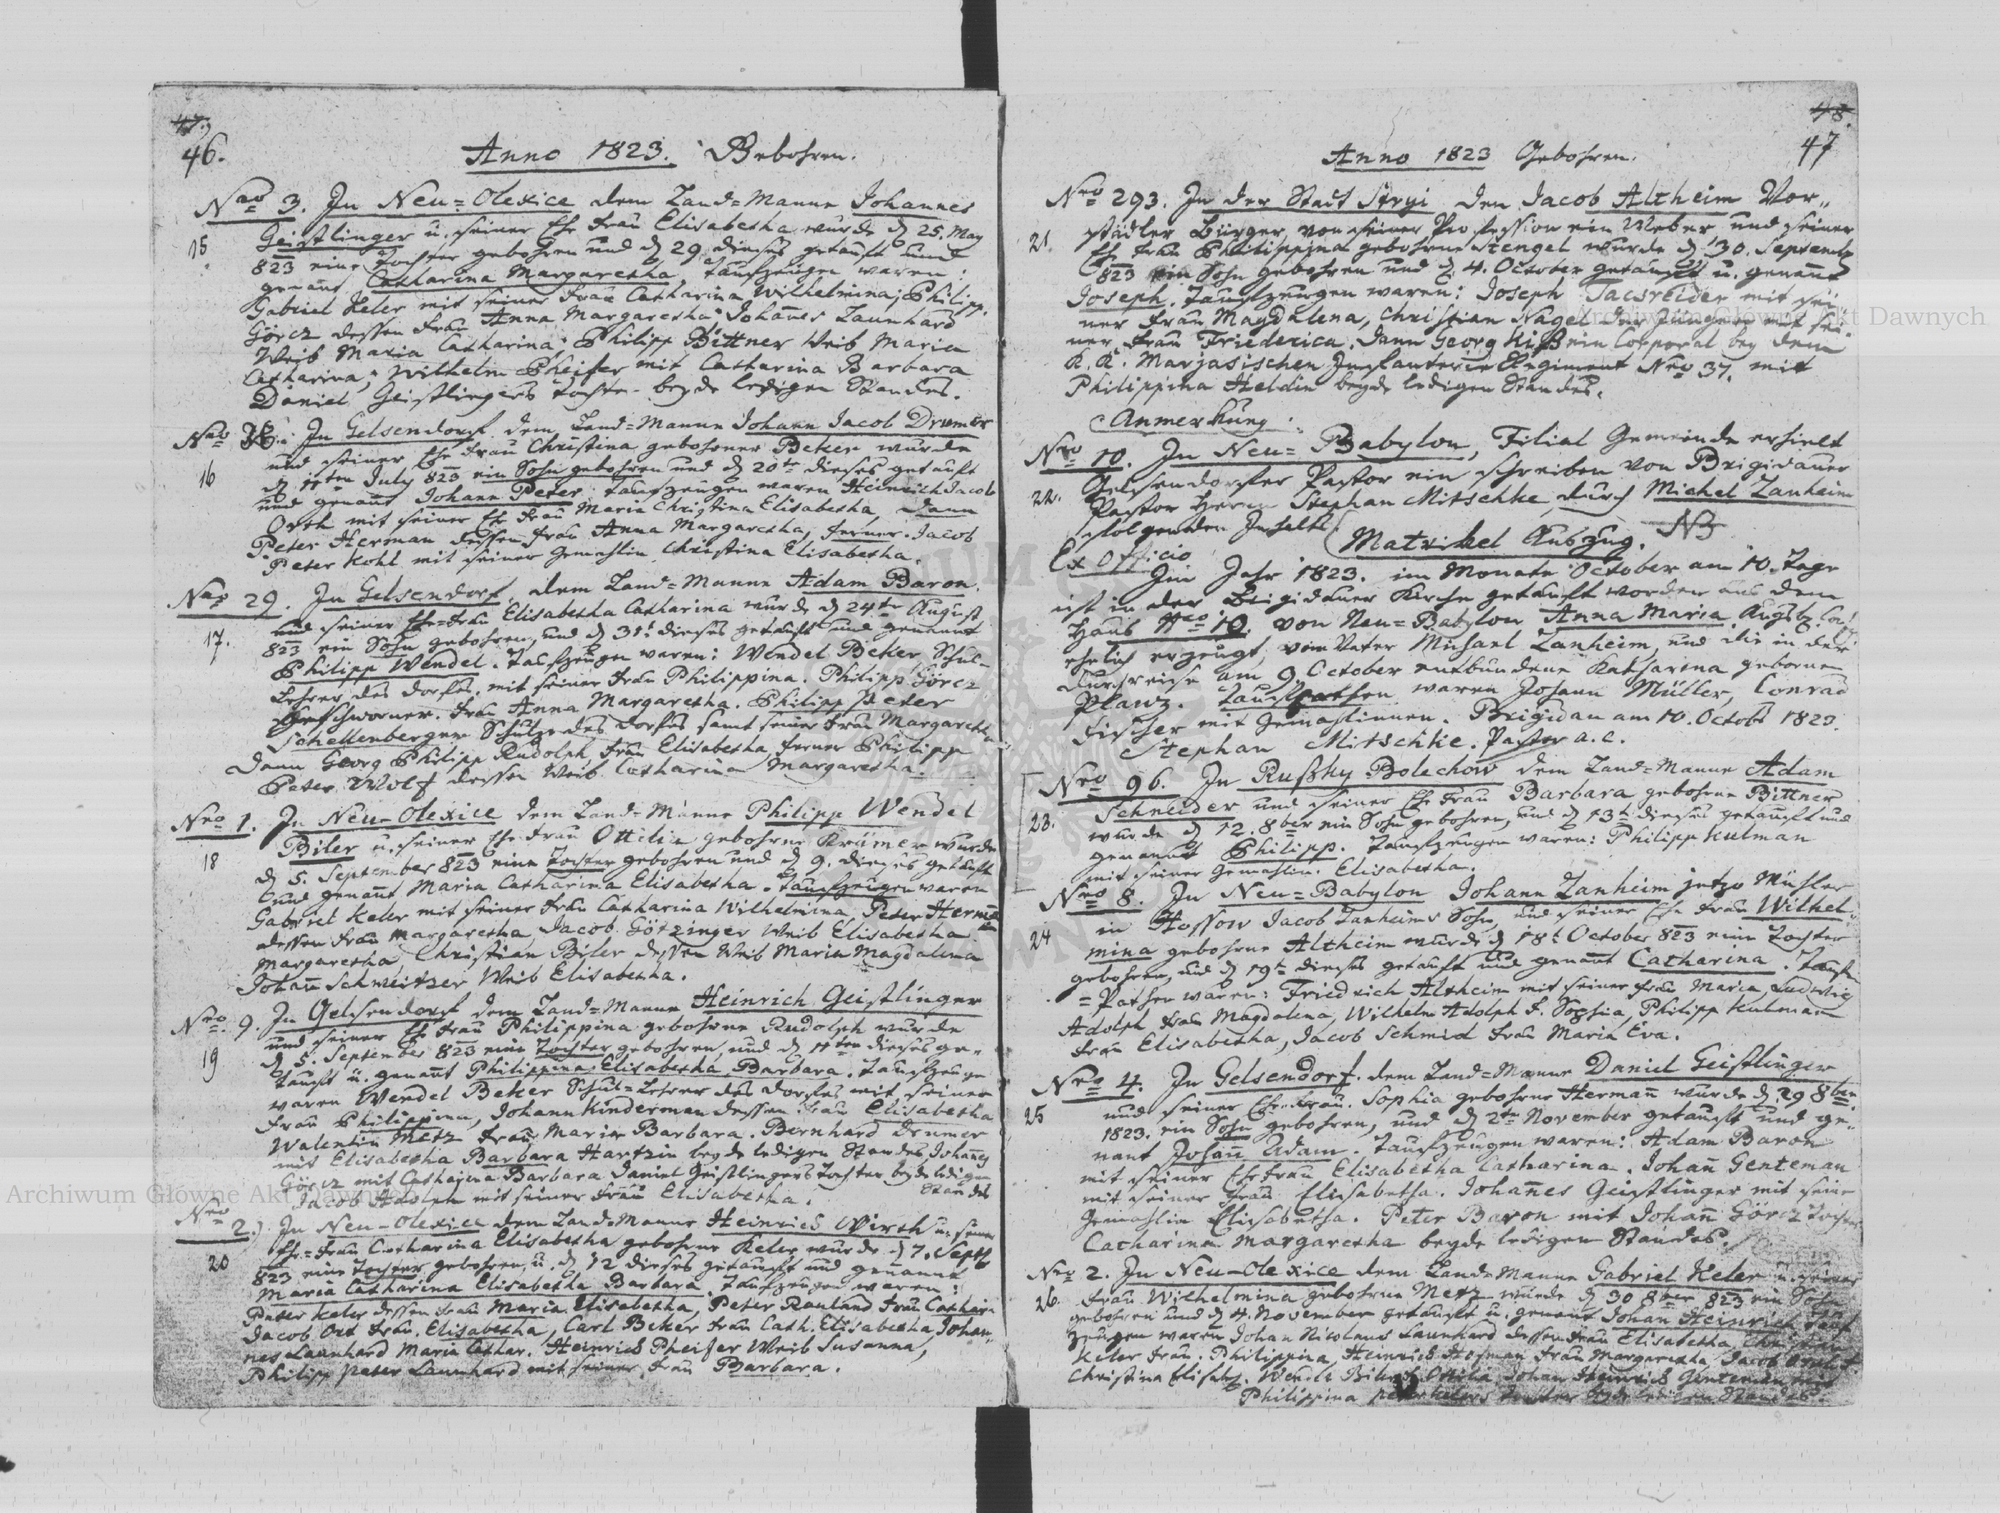 47.
46.
Anno 1823. Gebohren.
Nro 3. In Neu=Olexice dem Land=Manne Johannes
15
Geistlinger u. seiner Ehe Frau Elisabetha wurde d 25. May
823 eine Tochter gebohren und d 29 dieses getauft und
genant Catharina Margaretha, Taufzeugen waren:
Gabriel Keler mit seiner Frau Catharina Wilhelmina; Philipp
Görcz dessen Frau Anna Margaretha; Johannes Launhard
Weib Maria Catharina; Philipp Bittner Weib Maria
Catharina; Wilhelm Pheifer mit Catharina Barbara
Daniel Geistlingers Tochter beyde ledigen Standes.
Nro In Gelsendorf dem Land=Manne Johann Jacob Drumer
16
und seiner Ehe Frau Christina gebohrner Beker wurde
d 11ten July 823 ein Sohn gebohren und d 20te dieses getauft
und genant Johann Peter, Taufzeugen waren Heinrich Jacob
Orth mit seiner Ehe Frau Maria Christina Elisabetha, Dann
Peter Herman dessen Frau Anna Margaretha, ferner Jacob
Peter Kohl mit seiner Gemahlin Christina Elisabetha.
Nro 29. In Gelsendorf, dem Land=Manne Adam Baron
17.
und seiner Ehe=Frau Elisabetha Catharina wurde d 24te August
823 ein Sohn gebohren, und d 31t dieses getauft und genannt
Philipp Wendel. Taufzeugen waren: Wendel Beker, Schul=
Lehrer des Dorfes, mit seiner Frau Philippina. Philipp Görcz
Geschworner. Frau Anna Margaretha. Philipp Peter
Schellenberger Schulze des Dorfes samt seiner Frau Margaretha
Dann Georg Philipp Rudolph, Frau Elisabetha, ferner Philipp
Peter Wolf dessen Weib Catharina Margaretha.
Nro 1. In Neu=Olexice dem Land=Manne Philipp Wendel
18
Biler u. seiner Ehe Frau Ottilia gebohrne Krämer wurde
d 5. September 823 eine Tochter gebohren und d 9. dieses getauft
und genant Maria Catharina Elisabetha. Taufzeugen waren
Gabriel Keler mit seiner Frau Catharina Wilhelmina, Peter Herman
dessen Frau Margaretha, Jacob Götzinger Weib Elisabetha
Margaretha, Christian Biler dessen Weib Maria Magdalena
Johann Schweitzer Weib Elisabetha.
Nro 9. In Gelsendorf dem Land=Manne Heinrich Geistlinger
19
und seiner Eh Frau Philippina gebohrne Rudolph wurde
d 5. September 823 eine Tochter gebohren, und d 11ten dieses ge=
tauft u. genant Philippina Elisabetha Barbara. Taufzeuge
waren Wendel Beker Schul=Lehrer des Dorfes mit seiner
Frau Philippina, Johann Kinderman dessen Frau Elisabetha
Walentin Metz Frau Maria Barbara. Bernhard Drumer
mit Elisabetha Barbara Hartzin beyde ledigen Standes, Johannes
Görcz mit Catharina Barbara Daniel Geistlingers Tochter beyde ledigen
Standes
Jacob Adolph mit seiner Frau Elisabetha.
Nro 2. In Neu=Olexice dem Land=Manne Heinrich Wirth u. seiner
20
Ehe=Frau Catharina Elisabetha gebohrne Keler wurde d 7. Septb
823 eine Tochter gebohren, u. d 12 dieses getauft und genannt
Maria Catharina Elisabetha Barbara. Taufzeugen waren:
Peter Keler dessen Frau Maria Elisabetha, Peter Rauland Frau Cathari
Jacob Ort Frau Elisabetha, Carl Beker Frau Cath. Elisabetha, Johan
nes Launhard Maria Cathar. Heinrich Pheifer Weib Susanna,
Philipp Peter Launhard mit seiner Frau Barbara.
48.
47
Anno 1823 Gebohren.
Nro 293. In der Stadt Stryi dem Jacob Altheim Vor=
21.
städler Bürger, von seiner Profession ein Weber und seiner
Eh Frau Philippina gebohrne Stengel wurde d 30. Septemb
823 ein Sohn gebohren und d 4. October getauft u. genannt
Joseph. Taufzeugen waren: Joseph mit sei
ner Frau Magdalena, Christian Nagel der Jüngere mit sei
ner Frau Friederica. Dann Georg Kiß ein Corporal bey dem
K. K. Marjasischen Infanterie Regiment Nro 37. mit
Philippina Heldin beyde ledigen Standes.
Anmerkung:
Nro 10. In Neu=Babylon, Filial Gemeinde erhielt
22.
Gelsendorfer Pastor ein Schreiben von Brigidauer
Pastor Herrn Stephan Mitschke, durch Michel Zanheim
folgenden Inhalts
Matrikel Auszug. NB
Ex Officio
Im Jahr 1823. im Monate October am 10. Tage
ist in der Brigidauer Kirche getauft worden aus dem
Haus Nro 10. von Neu=Babylon Anna Maria Augsb. Con.
ehelich erzeugt, vom Vater Michael Zanheim, und die in der
Durchreise am 9 October entbundene Katharina geborne
Planz. Taufpathen waren Johann Müller, Conrad
Fischer mit Gemahlinnen. Brigidau am 10. Octobr 1823.
Stephan Mitschke. Pastor a. c.
Nro 96. In Rußky Bolechow dem Land=Manne Adam
23.
Schneider und seiner Eh Frau Barbara gebohrne Bittner
wurde d 12. 8ber ein Sohn gebohren, und d 13t dieses getauft und
genannt Philipp. Taufzeugen waren: Philipp Kulman
mit seiner Gemahlin Elisabetha.
Nro 8. In Neu=Babylon Johann Zanheim jetzo Müller
24
in Hossow Jacob Zanheims Sohn, und seiner Eh Frau Wilhel=
mina gebohrne Altheim wurde d 18t October 823 eine Tochter
gebohren, und d 19t dieses getauft und genannt Catharina. Tauf
=Pathen waren: Friedrich Altheim mit seiner Frau Maria, Ludwig
Adolph Frau Magdalena, Wilhelm Adolph F. Sophia, Philipp Kulman
Frau Elisabetha, Jacob Schmid Frau Maria Eva.
Nro 4. In Gelsendorf. dem Land=Manne Daniel Geistlinger
25
und seiner Ehe Frau Sophia gebohrne Hermann wurde d 29 8ber
1823. ein Sohn gebohren, und d 2te November getauft und ge=
nant Johann Adam. Taufzeugen waren: Adam Baron
mit seiner Ehe Frau Elisabetha Catharina. Johann Genteman
mit seiner Frau Elisabetha. Johannes Geistlinger mit seine
Gemahlin Elisabetha. Peter Baron mit Johann Görcz Tochter
Catharina Margaretha beyde ledigen Standes.
Nro 2. In Neu=Olexice dem Land=Manne Gabriel Keler u. seiner
26.
Frau Wilhelmina gebohrne Metz wurde d 30 8ber 823 ein Sohn
gebohren und d 4. November getauft u. genant Johan Heinrich, Tauf
zeugen waren Johan Nicolaus Launhard dessen Frau Elisabetha,
Keler Frau Philippina, Heinrich Hofman Frau Margaretha, Jacob
Christina Elisab. Wendel Biler Ottilia, Johan Heinrich Genteman mit
Philippina Peter Kelers Tochter beyde ledigen Standes.
Archiwum Główne Akt Dawnych
Archiwum Główne Akt Dawnych